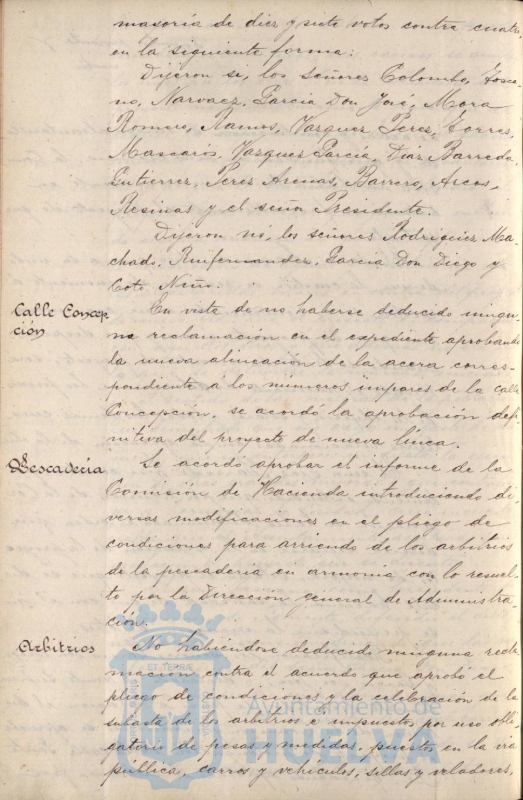 masoría de diez y siete votos contra cuatro,
en la siguiente forma:
Dijeron si, los señores Colombo, Tosca-
no, Narvaez, Garcia Don José, Mora
Romero, Ramos, Vazquez Perez, Torres,
Mascarós, Vazquez Garcia, Diaz Barreda,
Gutierrez, Perez Arenas, Barrero, Arcos,
Resinas y el señor Presidente.
Dijeron nó, los señores Rodriguez Ma-
chado, Ruifernandez, Garcia Don Diego y
Coto Niño.
Calle Concep
ción
En vista de no haberse deducido ningu-
na reclamación en el expediente aprobando
la nueva alineación de la acera corres-
pondiente a los números impares de la calle
Concepción, se acordó la aprobación defi-
nitiva del proyecto de nueva línea.
Pescadería
Se acordó aprobar el informe de la
Comisión de Hacienda introduciendo di-
versas modificaciones en el pliego de
condiciones para arriendo de los arbitrios
de la pescadería en armonia con lo resuel-
to por la Dirección general de Administra-
ción.
Arbitrios
No habiéndose deducido ninguna recla-
mación contra el acuerdo que aprobó el
pliego de condiciones y la celebración de la
subasta de los arbitrios é impuestos por uso obli-
gatorio de pesas y medidas, puestos en la vía
pública, carros y vehículos, sillas y veladores,
ET TERRÆ
Ayuntamiento de
HUELVA